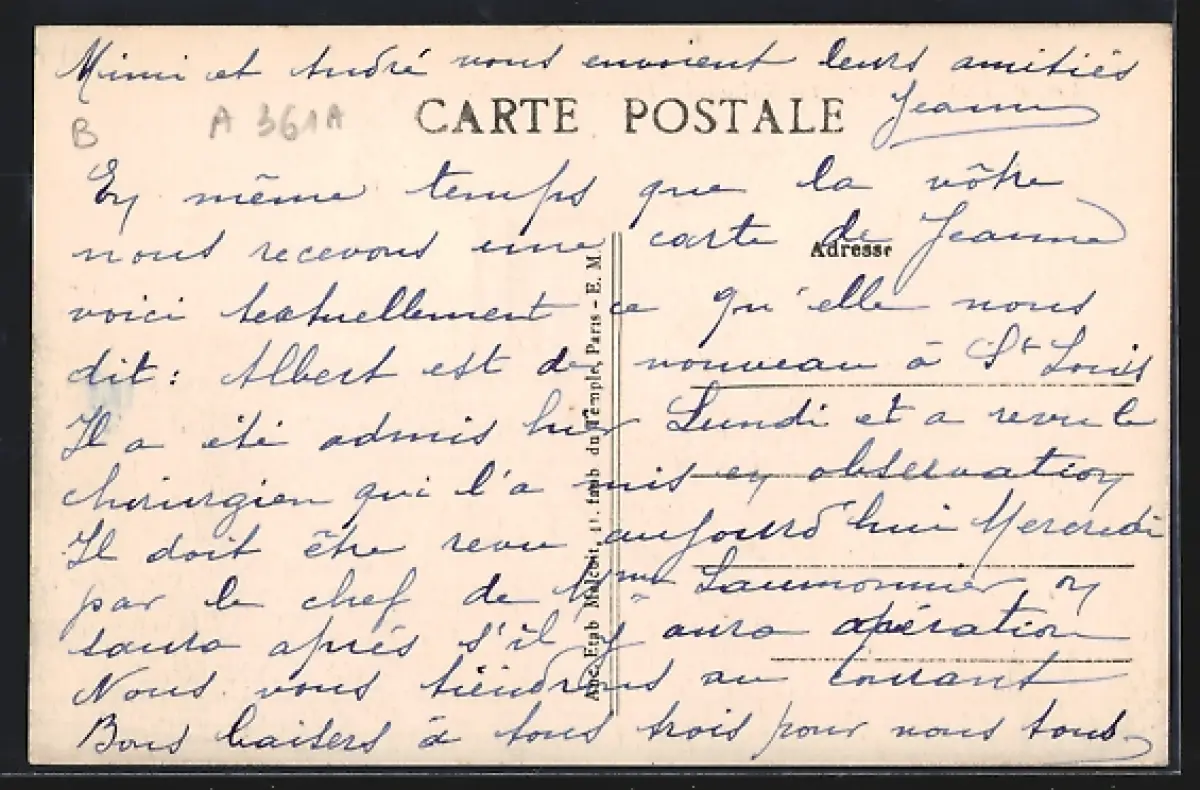 Mimi et André vous envoient leurs amitiés
Jeanne
B A 361A
CARTE POSTALE
En même temps que la vôtre
nous recevons une carte de Jeanne
Adresse
voici textuellement ce qu'elle nous
dit : Albert est de nouveau à St Louis
Il a été admis hier Lundi et a revu le
chirurgien qui l'a mis en observation
Il doit être revu aujourd'hui Mercredi
par le chef de Mme Laumonnier on
saura après s'il y aura opération
Nous vous tiendrons au courant
Bons baisers à tous trois pour nous tous
Anc. Etab. Malcuit, faub du Temple, Paris - E. M.